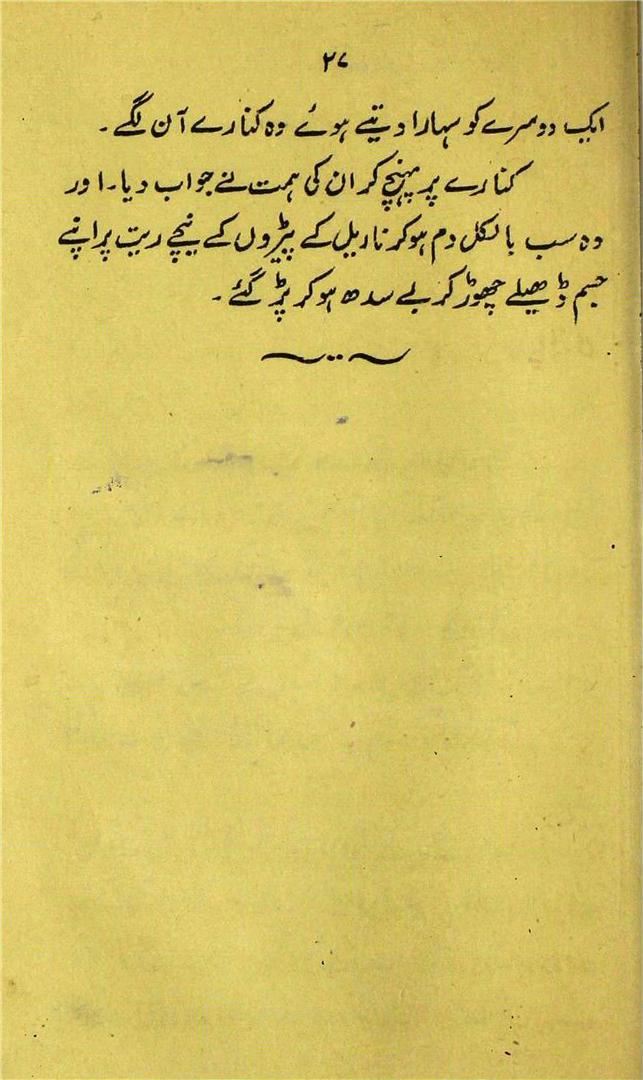 ۲۷
ایک دوسرے کو سہارا دیتے ہوئے وہ کنارے آن لگے۔
کنارے پر پہنچ کر ان کی ہمت نے جواب دیا۔ اور
وہ سب بالکل دم ہو کر ناریل کے پیڑوں کے نیچے ریت پر اپنے
جسم ڈھیلے چھوڑ کر بے سدھ ہو کر پڑ گئے۔